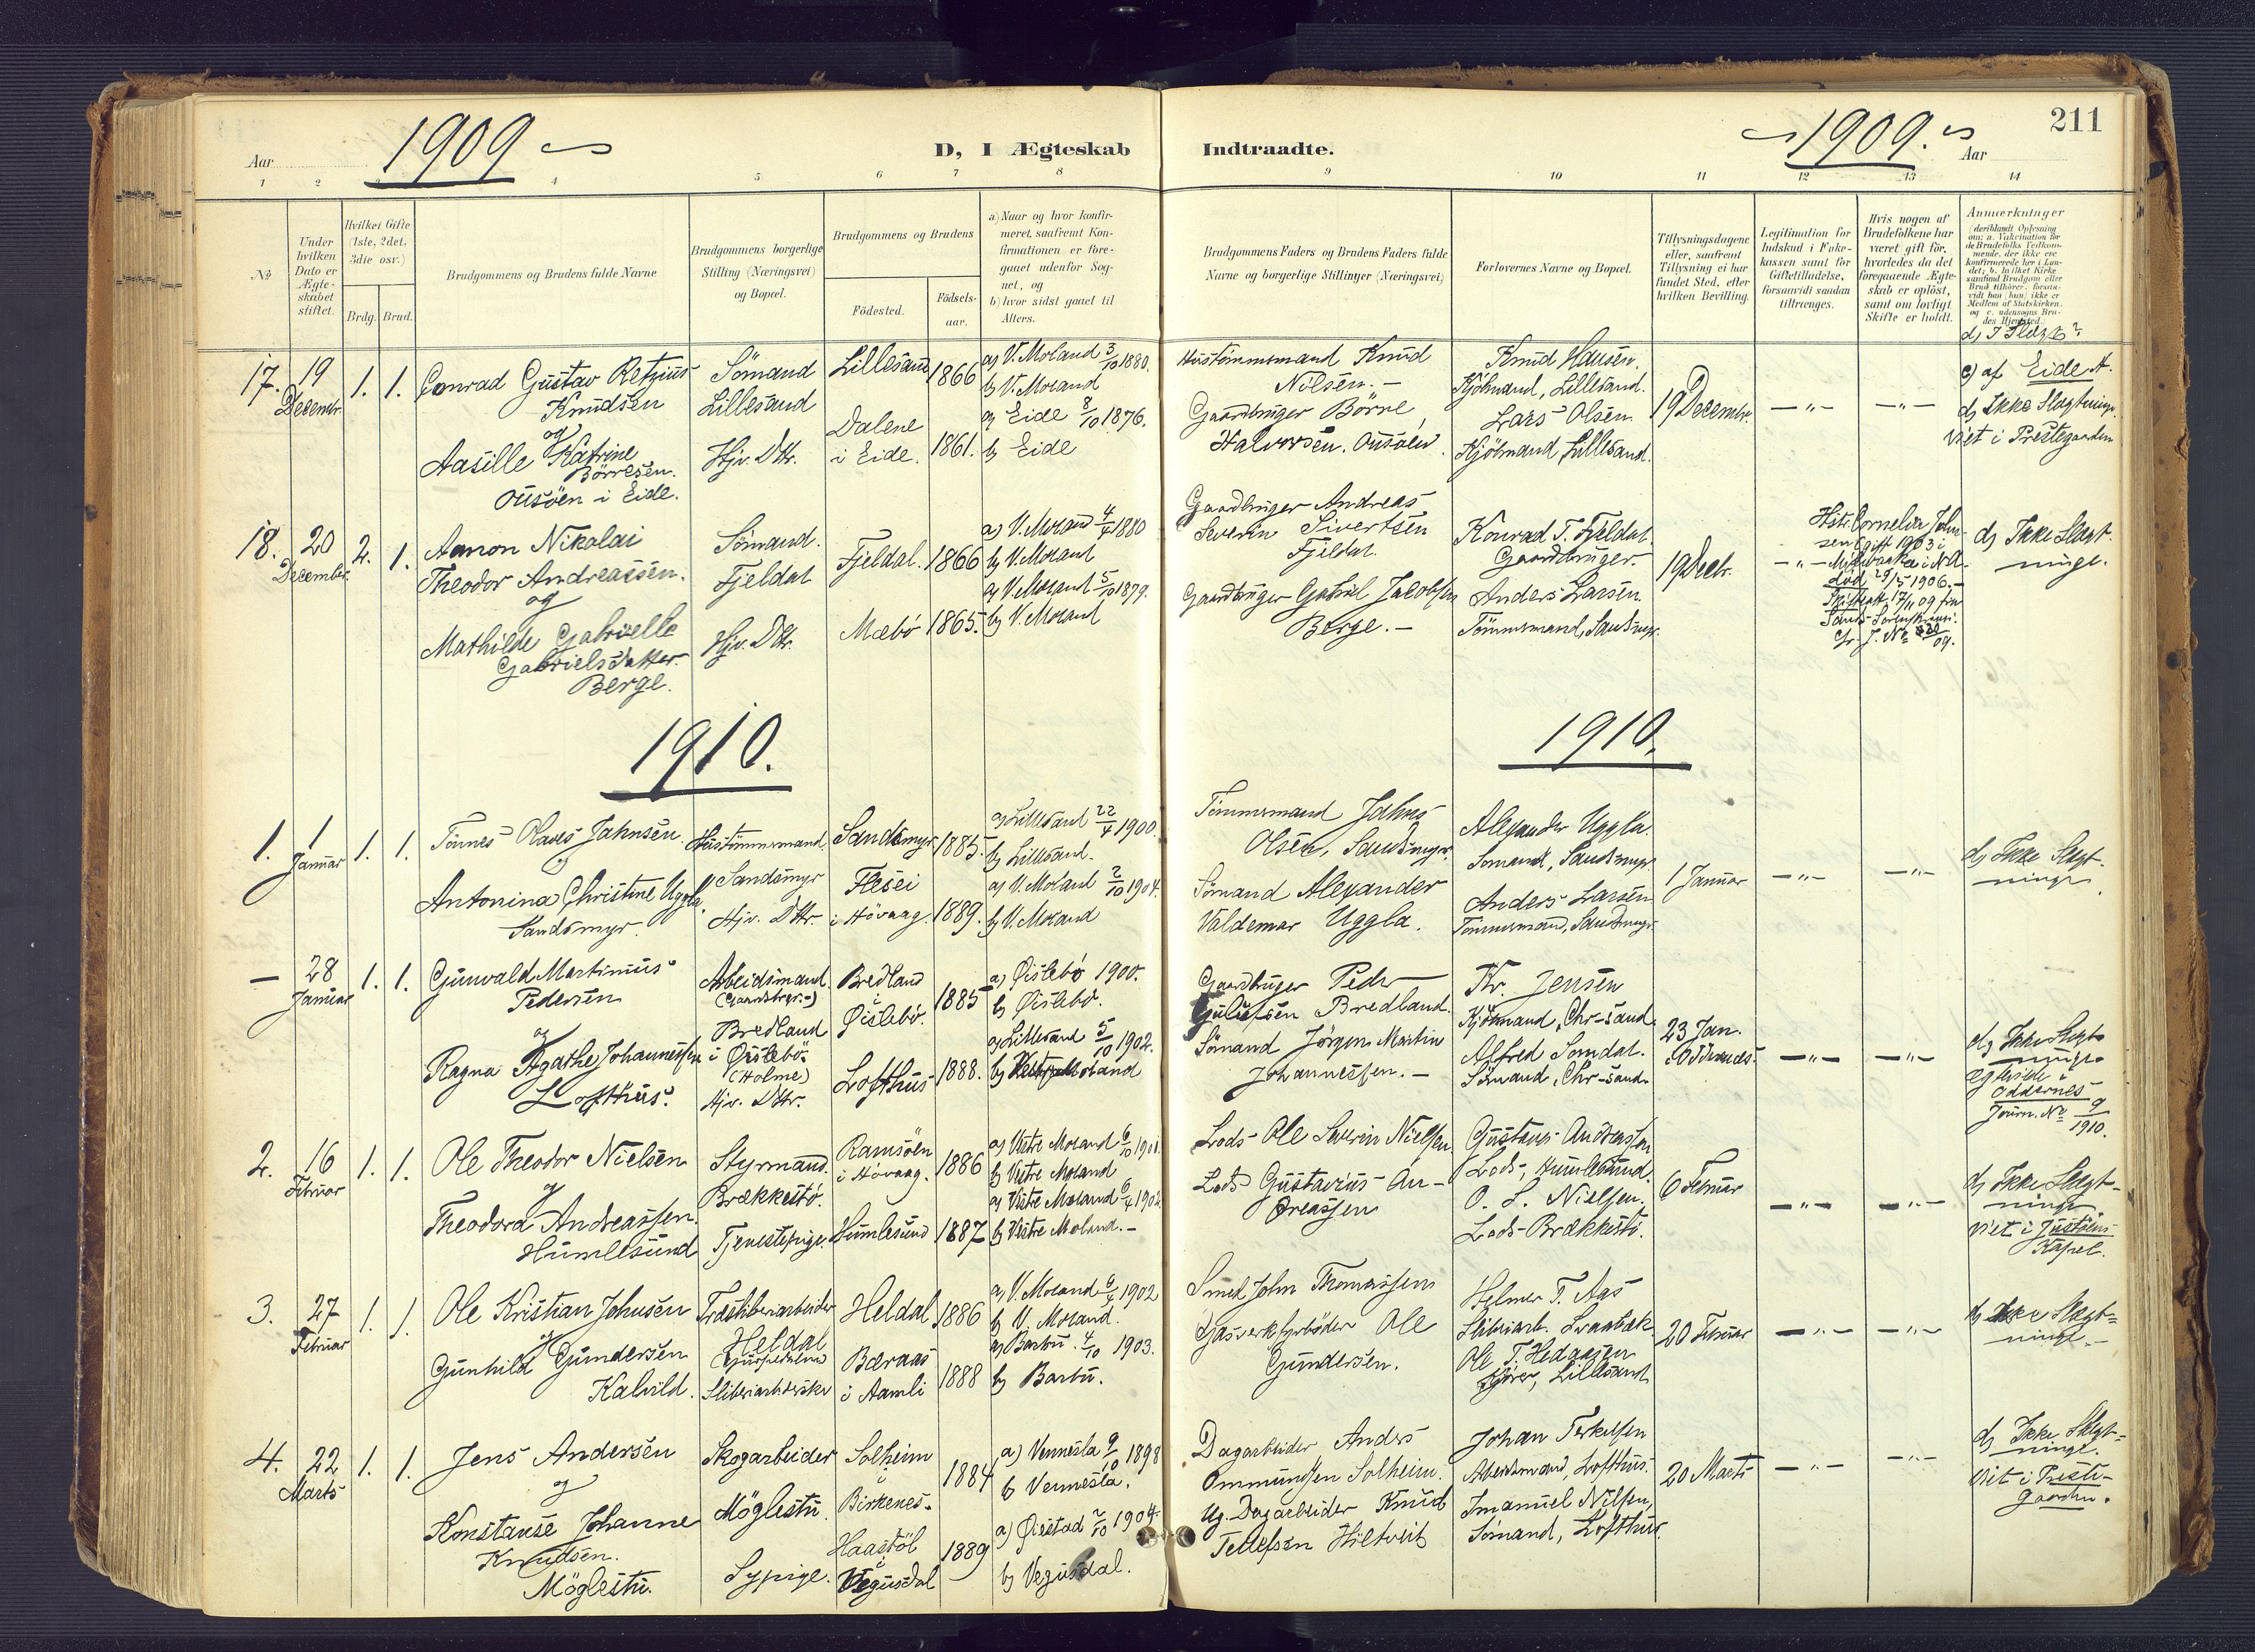 211
Aar 1909
D, I Ægteskab Indtraadte.
1909. Aar
1 2 3 4 5 6 7 8 9 10 11 12 13 14
No
Under hvilken Dato er Ægteskabet stiftet.
Hvilket Gifte (1ste, 2det, 3die osv.)
Brdg. Brud.
Brudgommens og Brudens fulde Navne
Brudgommens borgerlige Stilling (Næringsvei) og Bopæl.
Brudgommens og Brudens
Fødested.
Fødselsaar.
a) Naar og hvor konfirmeret, saafremt Konfirmationen er foregaaet udenfor Sognet, og
b) hvor sidst gaaet til Alters.
Brudgommens Faders og Brudens Faders fulde Navne og borgerlige Stillinger (Næringsvei)
Forlovernes Navne og Bopæl.
Tillysningsdagene eller, saafremt Tillysning ei har fundet Sted, efter hvilken Bevilling.
Legitimation for Indskud i Enkekassen samt for Giftetilladelse, forsaavidt saadan tiltrænges.
Hvis nogen af Brudefolkene har været gift før, hvorledes da det foregaaende Ægteskab er opløst, samt om lovligt Skifte er holdt.
Anmærkninger
d) I Slægt?
17. 19 Decembr. 1. 1.
Conrad Gustav Retzius Knudsen
og
Aasille Katrine Börresen.
Ousöen i Eide.
Sömand Lillesand
Hjv. Dtr.
Lillesand 1866
Dalene i Eide. 1861.
a) V. Moland 3/10 1880.
b) V. Moland
a) Eide 8/10 1876.
b) Eide
Hustömmermand Knud Nilsen. –
Gaardbruger Börre Halvorsen, Ousöen.
Knud Hansen.
Kjöbmand, Lillesand.
Lars Olsen.
Kjöbmand Lillesand.
19 Decembr.
– " – – " –
c) af Eide A.
d) Ikke Slægtninge.
Viet i Prestegaarden
18. 20 December. 2. 1.
Aanon Nikolai Theodor Andreassen.
og
Mathilde Gabrielle Gabrielsdatter Berge.
Sömand. Fjeldal
Hjv. Dtr.
Fjeldal. 1866
Mæbö 1865.
a) V. Moland 4/4 1880
b) V. Moland
a) V. Moland 5/10 1879.
b) V. Moland
Gaardbruger Andreas Severin Sivertsen Fjeldal.
Gaardbruger Gabriel Jacobsen Berge. –
Konrad T. Fjeldal.
Gaardbruger.
Anders Larsen
Tömmermand, Sandsmyr.
19 Decbr.
– " –
Cornelia
gift 1903 i
død 29/5 1906. –
Skifteatt. 17/11 09 fra
d) Ikke Slægtninge.
1910. 1910.
1. 1 Januar 1. 1.
Tönnes Olaves Jahnsen.
og
Antonina Christine Uggla.
Sandsmyr.
Hustömmermand. Sandsmyr
Hjv. Dtr.
Sandsmyr 1885
Flesei i Hövaag. 1889.
a) Lillesand 22/4 1900.
b) Lillesand.
a) V. Moland 2/10 1904.
b) V. Moland
Tömmermand Jahns Olsen, Sandsmyr.
Sömand Alexander Valdemar Uggla.
Alexander Uggla.
Sömand, Sandsmyr.
Anders Larsen
Tömmermand, Sandsmyr.
1 Januar
– " – – " –
d) Ikke Slægtninge
– 28 Januar 1. 1.
Gunvald Martinius Pedersen
og
Ragna Agathe Johannessen
Lofthus.
Arbeidsmand. (Gaardbrgr.) Bredland i Øislebö. (Holme)
Hjv. Dtr.
Bredland i Øislebö. 1885
Lofthus 1888.
a) Øislebö 1900.
b) Øislebö.
a) Lillesand 5/10 1902.
b) Vestre Moland
Gaardbruger Peder Bredland.
Sömand Jörgen Martin Johannessen. –
Kr. Jensen
Kjöbmand, Chr-sand.
Alfred Somdal.
Sömand, Chr-sand.
23 Jan.
– " – – " –
d) Ikke Slægtninge
Egteviede i Oddernes
Journ. No 9 1910.
2. 16 Februar 1. 1.
Ole Theodor Nielsen
og
Theodora Andreassen.
Humlesund
Styrmand. Brækkestö.
Tjenestepige.
Ramsöen i Hövaag. 1886
Humlesund 1887
b) Vestre Moland
b) Vestre Moland. –
Lods Ole Severin Nielsen
Lods Gustavius Andreassen
Gustavus Andreassen
Lods, Humlesund.
O. S. Nielsen.
Lods-Brækkestö.
6 Februar
– " – – " –
d) Ikke Slægtninge
Viet i Justöens Kapel.
3. 27 Februar 1. 1.
Ole Kristian Johnsen
og
Gunhild Gundersen
Kalvild.
Træsliberiarbeider Heldal
Heldal 1886
Bæraas i Aamli 1888
a) V. Moland 6/4 1902
b) V. Moland.
a) Barbu. 4/10 1903.
b) Barbu.
Smed John Thomassen
Gasverksfyrböder Ole Gundersen.
Helmer T. Aas
Ole T. Hedaasen
Lillesand
20 Februar
– " – – " –
d) Ikke Slægtninge. –
4. 22 Marts 1. 1.
Jens Andersen
og
Konstanse Johanne Knudsen.
Möglestu.
Skogarbeider Möglestu.
Sypige.
Solheim i Birkenes. 1884
Haastöl i Vegusdal 1889
a) Vennesla 9/10 1898
b) Vennesla.
a) Øiestad 2/10 1904.
b) Vegusdal.
Dagarbeider Anders Ommundsen Solheim.
Ug. Dagarbeider Knud Tellefsen Hiltveit
Johan Terkelsen
Arbeidsmand, Lofthus.
Imanuel Nilsen,
Sömand, Lofthus.
20 Marts
– " – – " –
d) Ikke Slægtninge.
Viet i Prestegaarden.